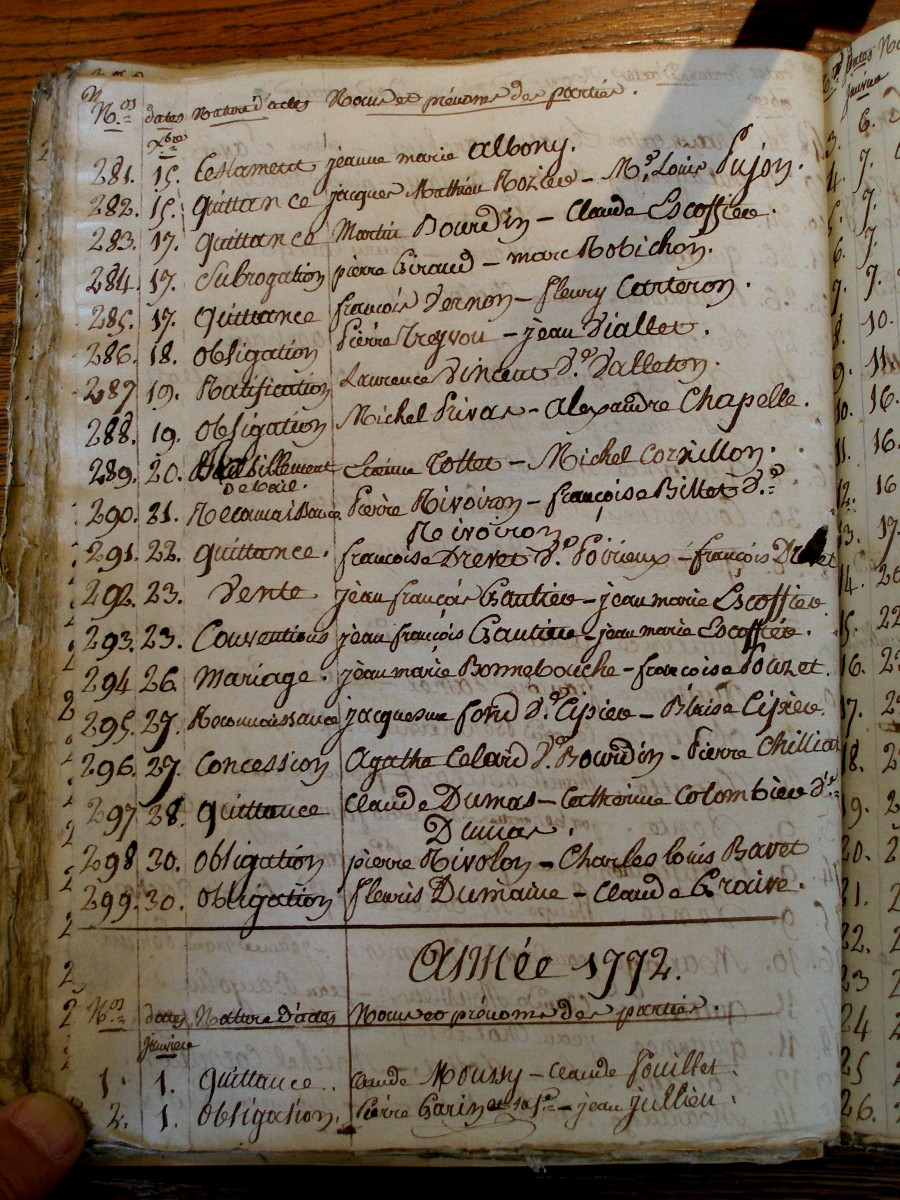 N.os dates Nature d'actes Noms et prénoms des parties.
Xbre
281. 15. testament jeanne marie Albony.
282. 15. quittance jacques Mathieu Rozier - Mre Louis Pujon.
283. 17. quittance Martin Bourdin - Claude Escoffier.
284. 17. Subrogation pierre Giraud - marc Robichon.
285. 17. quittance françois Vernon - fleury Carteron.
286. 18. obligation Pierre Treyvou - jean Viallet.
287. 19. Ratification Laurence Vincent Vve Valleton.
288. 19. obligation Michel Privas - alexandre Chapelle.
289. 20. Tottet - Michel Cornillon.
de bail.
290. 21. Reconnaissance Pierre Rivoiron - françoise Billet Vve
Rivoiron
291. 22. quittance. francoise Drevet Vve Poirieux - françois Drevet
292. 23. Vente jean françois Gautier - jean marie Escoffier
293. 23. Conventions jean françois Gautier - jean marie Escoffier.
294 26. Mariage. jean marie Bonnebouche - françoise Pouzet.
295. 27. Reconnaissance jacques font Vve Cipier - Blaise Cipier.
296. 27. Concession Agathe Celard Vve Bourdin - Pierre Chilliat
297 28. quittance Claude Dumas - Catherine Colombier Vve
Dumas.
298 30. obligation pierre Rivolon - Charles louis Bavet
299. 30. obligation fleuris Dumaine - Claude Graive.
Année 1772.
N.os dates Nature d'actes Noms et prénoms des parties.
janvier
1. 1. quittance. claude Moussy - claude Pouillet.
2. 1. obligation. Pierre Garin et sa fe - jean jullien.